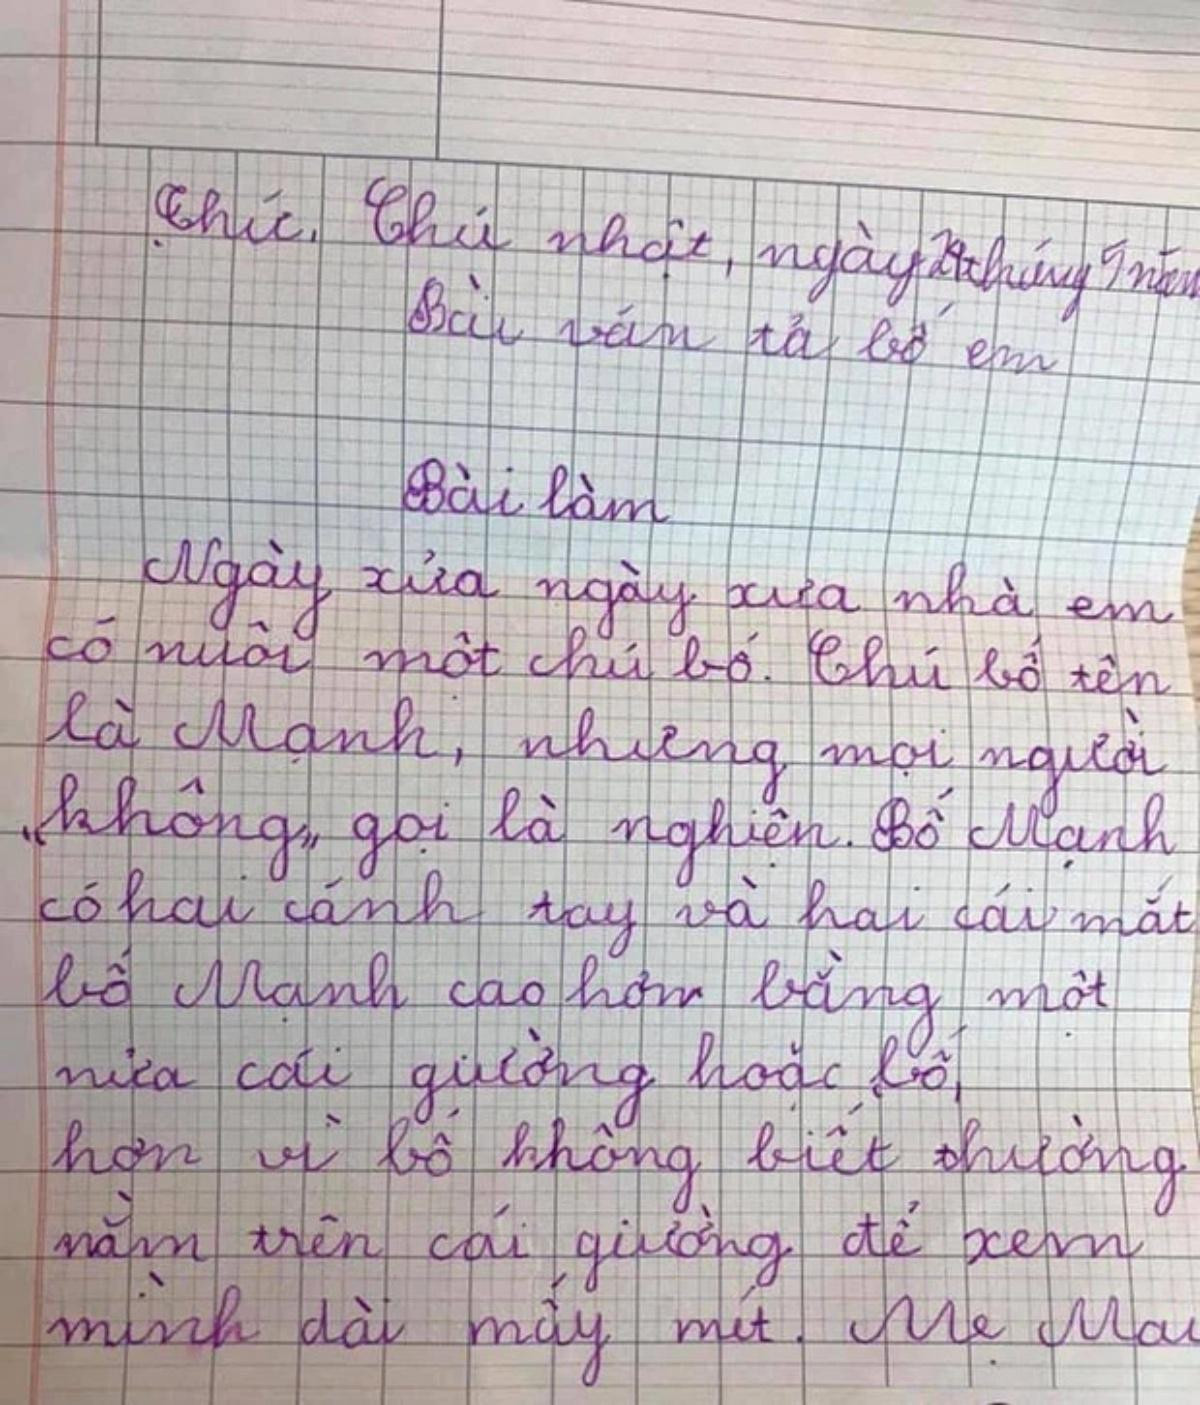 Thứ. Chủ nhật, ngày 24 tháng 5 năm
Bài văn tả bố em
Bài làm
Ngày xửa ngày xưa nhà em
có nuôi một chú bố. Chú bố tên
là Mạnh, nhưng mọi người
"không" gọi là nghiện. Bố Mạnh
có hai cánh tay và hai cái mắt
bố Mạnh cao hơn bằng một
nửa cái giường hoặc bố
hơn vì bố không biết thường
nằm trên cái giường để xem
mình dài mấy mét. Mẹ Mai